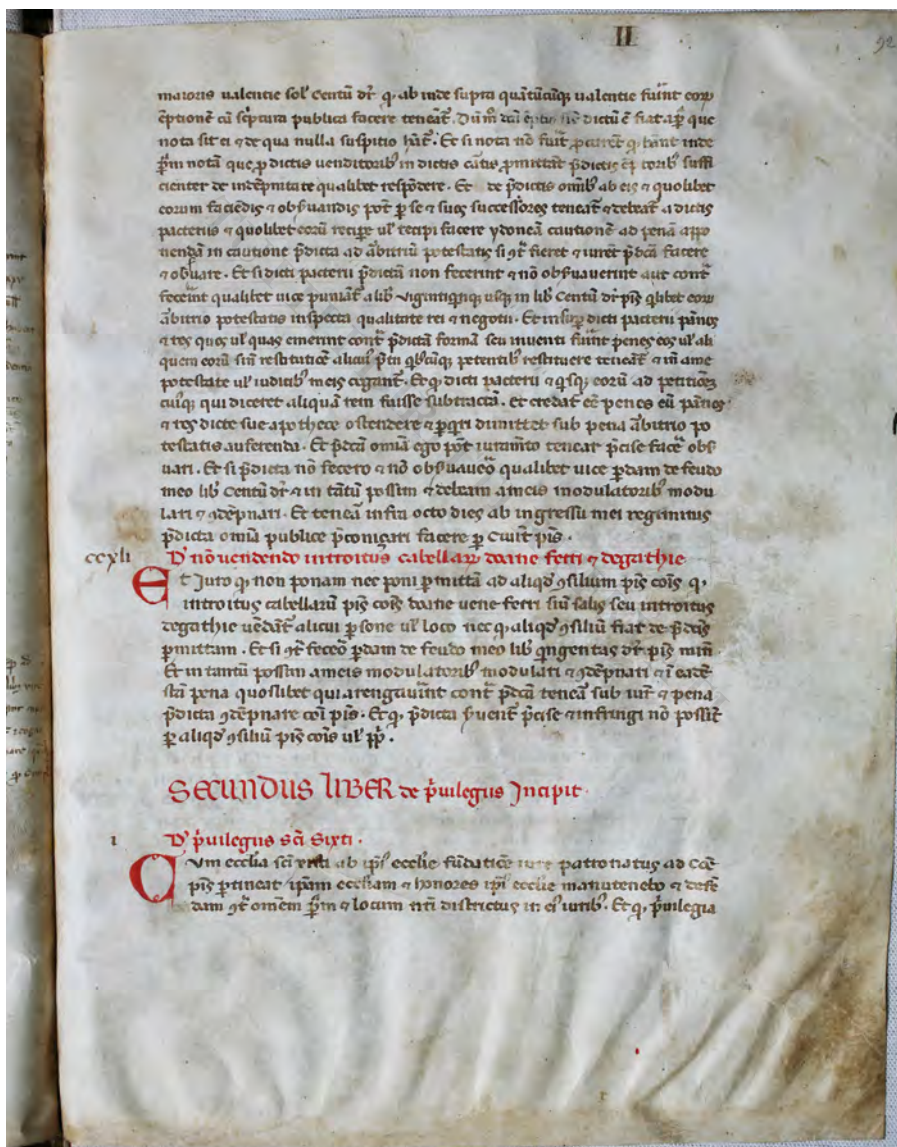 II
92
maioris ualentie sol' Centū dr̄ q, ab inde supra quātūcūq; ualentie fuīnt eorꝫ
ēptionē cū sc̄ptura publica facere teneāt̄.
nota sit ei ⁊ de qua nulla suspitio hāt̄. Et si nota nō fuīt
p̄m notā que p̄dictis uenditorib' in dictis cāis p̄mittāt̄ p̄dictis
cienter de indēpnitate qualibet respōdere. Et de p̄dictis om̄ib' ab eis ⁊ quolibet
eorum faciēdis ⁊ obs̄uandis pōt̄ p̄ se ⁊ suos successōres teneāt̄ ⁊ debeāt̄ a dictis
pacteriis ⁊ quolibet eorū recipe ul' recipi facere ydoneā cautionē ad penā appo
nendā in cautione p̄dicta ad ābitriū potestatis si ꝯt̄ fieret ⁊ iurēt p̄dc̄ā facere
⁊ obs̄uare. Et si dicti pacterii p̄dictā non fecerint ⁊ nō obs̄uauerint aut cont̄
feceīnt qualibet uice puniāt̄ a lib' uigintiqnq; usq; in lib' Centū dr̄ pis̄ qlibet eorꝫ
ābitrio potestatis inspecta qualitate rei ⁊ negotii. Et insup dicti pacterii pānos
⁊ res quos ul' quas emerint cont̄ p̄dictā formā seu inuenti fuīnt penes eos ul' ali
quem eorū sīn restitutiōe alicui' p̄tii qb'cūq; petentib' restituere teneāt̄ ⁊ īn a me
potestate ul' iudicib' meis cogant̄. Et q, dicti pacterii ⁊ qsq; eorū ad petitionēz
cuīq; qui diceret aliquā rem fuisse subtractā. et credat eē penes eū pānos
⁊ res dicte sue apothece ostendere ⁊ p̄qri dimittet sub pena ābitrio po
testatis auferenda. Et p̄dc̄ā omīa ego pōt̄ iuram̄to tenear p̄cise facē obs̄
uari. Et si p̄dicta nō fecero ⁊ nō obs̄uaueō qualibet uice p̄dam de feudo
meo lib' Centū dr̄ ⁊ in tātū possim ⁊ debeam a meis modulatorib' modu
lari ⁊ ꝯdēpnari. Et teneā infra octo dies ab ingressu mei regimitus
p̄dicta omīa publice p̄conicari facere p̄ Ciuit̄ pis̄.
ccxli D' nō uendendo introitus cabellarꝫ doane ferri ⁊ degathie
Et Iuro q, non ponam nec poni p̄mittā ad aliqd' ꝯsilium pis̄ cōis q,
introitus cabellarū pis̄ cōis doane uene ferri siū salis seu introitus
degathie uēdāt̄ alicui p̄sone ul' loco nec q, aliqd' ꝯsiliū fiat de p̄dc̄is
p̄mittam. Et si ꝯt̄ feceō p̄dam de feudo meo lib' qngentas dr̄ pis̄ mīn
Et in tantū possim a meis modulatorib' modulari ⁊ ꝯdēpnari ⁊ ī eadē
sta pena quoslibet qui arengauīnt cont̄ p̄dc̄ā teneā sub iur̄ ⁊ pena
p̄dicta ꝯdēpnare cōi pis̄. Et q, p̄dicta s̄uent̄ p̄cise ⁊ infringi nō possīt
p̄ aliqd' ꝯsiliū pis̄ cōis ul' pp̄.
SECUNDUS LIBER de p̄uilegiis Incipit.
I D' p̄uilegiis sc̄i Sixti.
Cvm eccl̄ia sc̄i xisti ab ip̄i' ecclie fūdatiōe iure patronatus ad Cōē
pis̄ p̄tineat ip̄am eccliam ⁊ honores ip̄i' ecclie manutenebo ⁊ defē
dam ꝯt̄ omēm p̄m ⁊ locum nr̄i districtus in ei' iurib'. Et q, p̄uilegia